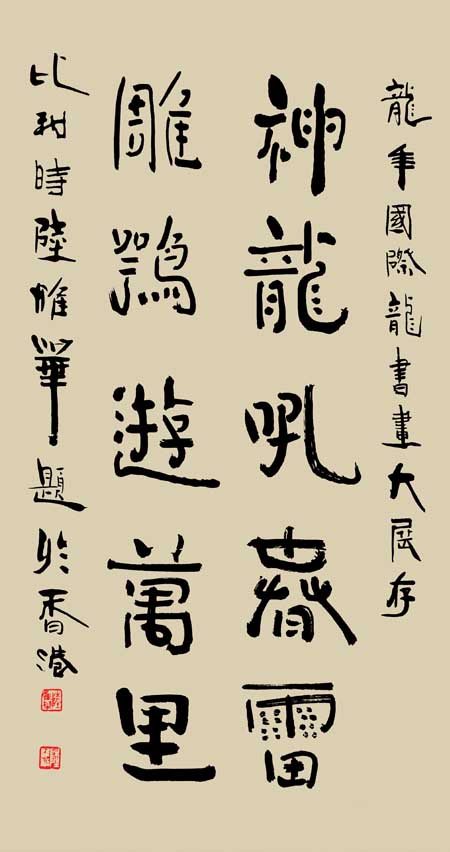 龍年國際龍書畫大展存
神龍吼春雷
雕鶚遊萬里
比利時陸惟華題於香港